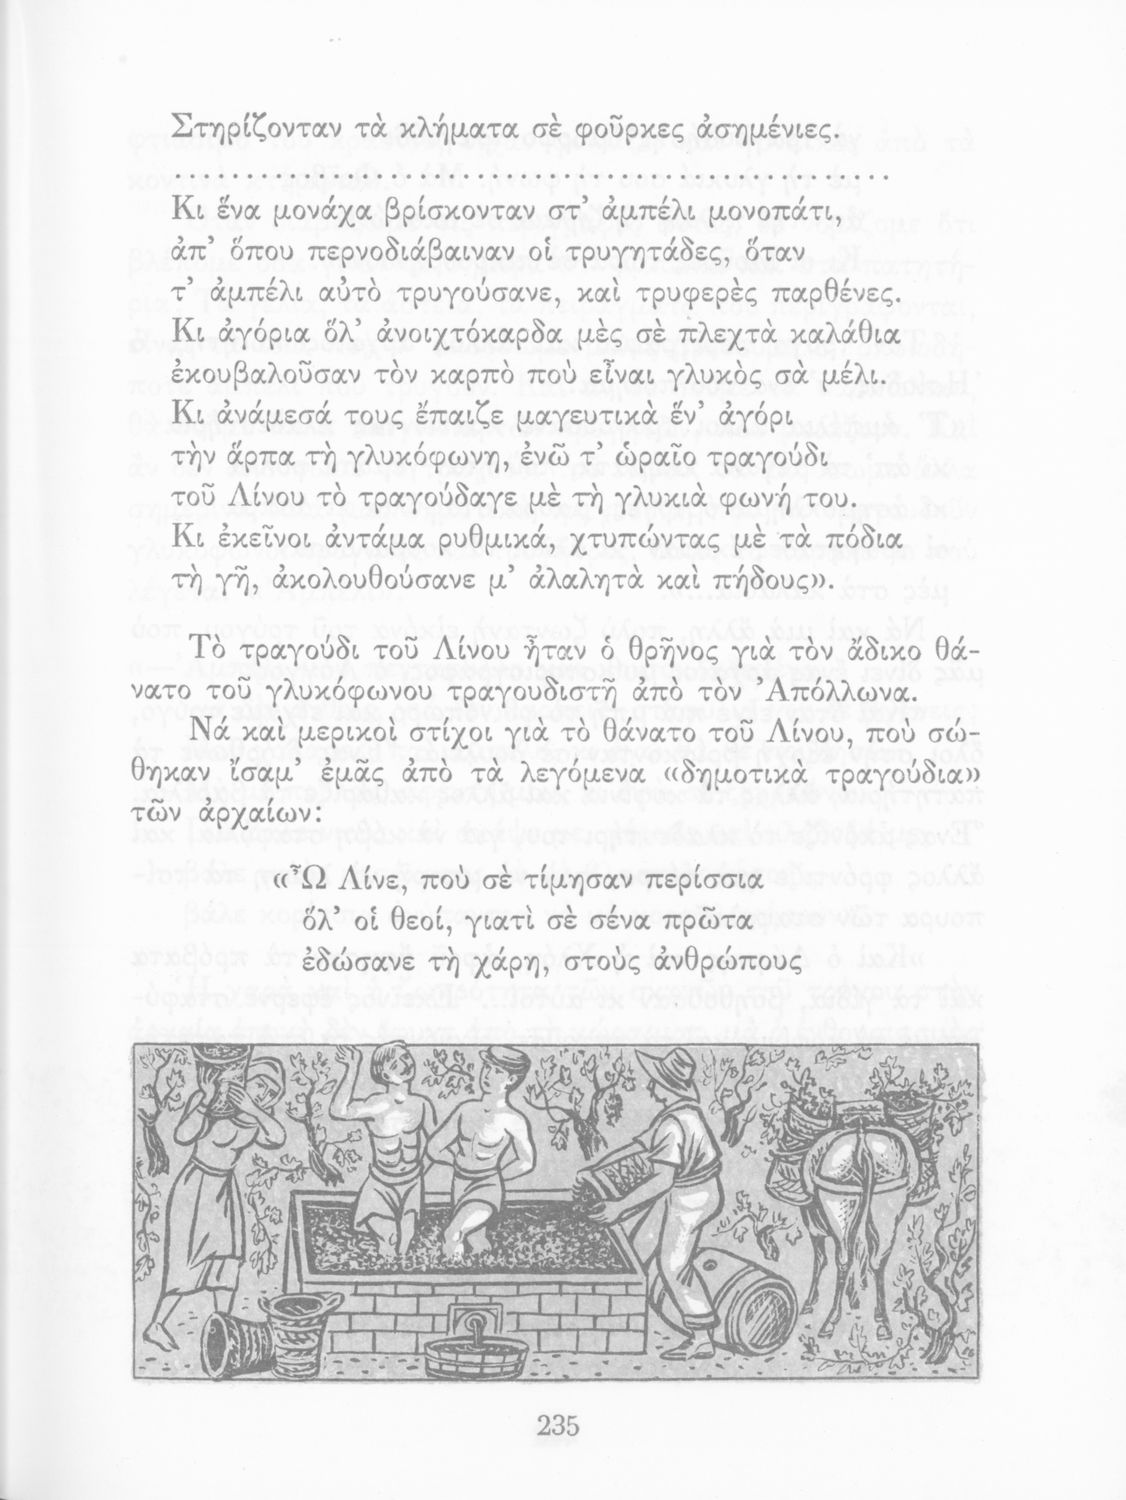 Στηρίζονταν τὰ κλήματα σὲ φοῦρκες ἀσημένιες.
. . . . . . . . . . . . . . . . . . . . . . . . . . . . . . . . . . . . . . . . . . . . . . . . . .
Κι ἕνα μονάχα βρίσκονταν στ’ ἀμπέλι μονοπάτι,
ἀπ’ ὅπου περνοδιάβαιναν οἱ τρυγητάδες, ὅταν
τ’ ἀμπέλι αὐτὸ τρυγούσανε, καὶ τρυφερὲς παρθένες.
Κι ἀγόρια ὅλ’ ἀνοιχτόκαρδα μὲς σὲ πλεχτὰ καλάθια
ἐκουβαλοῦσαν τὸν καρπὸ ποὺ εἶναι γλυκὸς σὰ μέλι.
Κι ἀνάμεσά τους ἔπαιζε μαγευτικὰ ἕν’ ἀγόρι
τὴν ἅρπα τὴ γλυκόφωνη, ἐνῶ τ’ ὡραῖο τραγούδι
τοῦ Λίνου τὸ τραγούδαγε μὲ τὴ γλυκιὰ φωνή του.
Κι ἐκεῖνοι ἀντάμα ρυθμικά, χτυπώντας μὲ τὰ πόδια
τὴ γῆ, ἀκολουθούσανε μ’ ἀλαλητὰ καὶ πήδους».
Τὸ τραγούδι τοῦ Λίνου ἦταν ὁ θρῆνος γιὰ τὸν ἄδικο θά-
νατο τοῦ γλυκόφωνου τραγουδιστῆ ἀπὸ τὸν Ἀπόλλωνα.
Νά καὶ μερικοὶ στίχοι γιὰ τὸ θάνατο τοῦ Λίνου, ποὺ σώ-
θηκαν ἴσαμ’ ἐμᾶς ἀπὸ τὰ λεγόμενα «δημοτικὰ τραγούδια»
τῶν ἀρχαίων:
«Ὦ Λίνε, ποὺ σὲ τίμησαν περίσσια
ὅλ’ οἱ θεοί, γιατὶ σὲ σένα πρῶτα
ἐδώσανε τὴ χάρη, στοὺς ἀνθρώπους
235